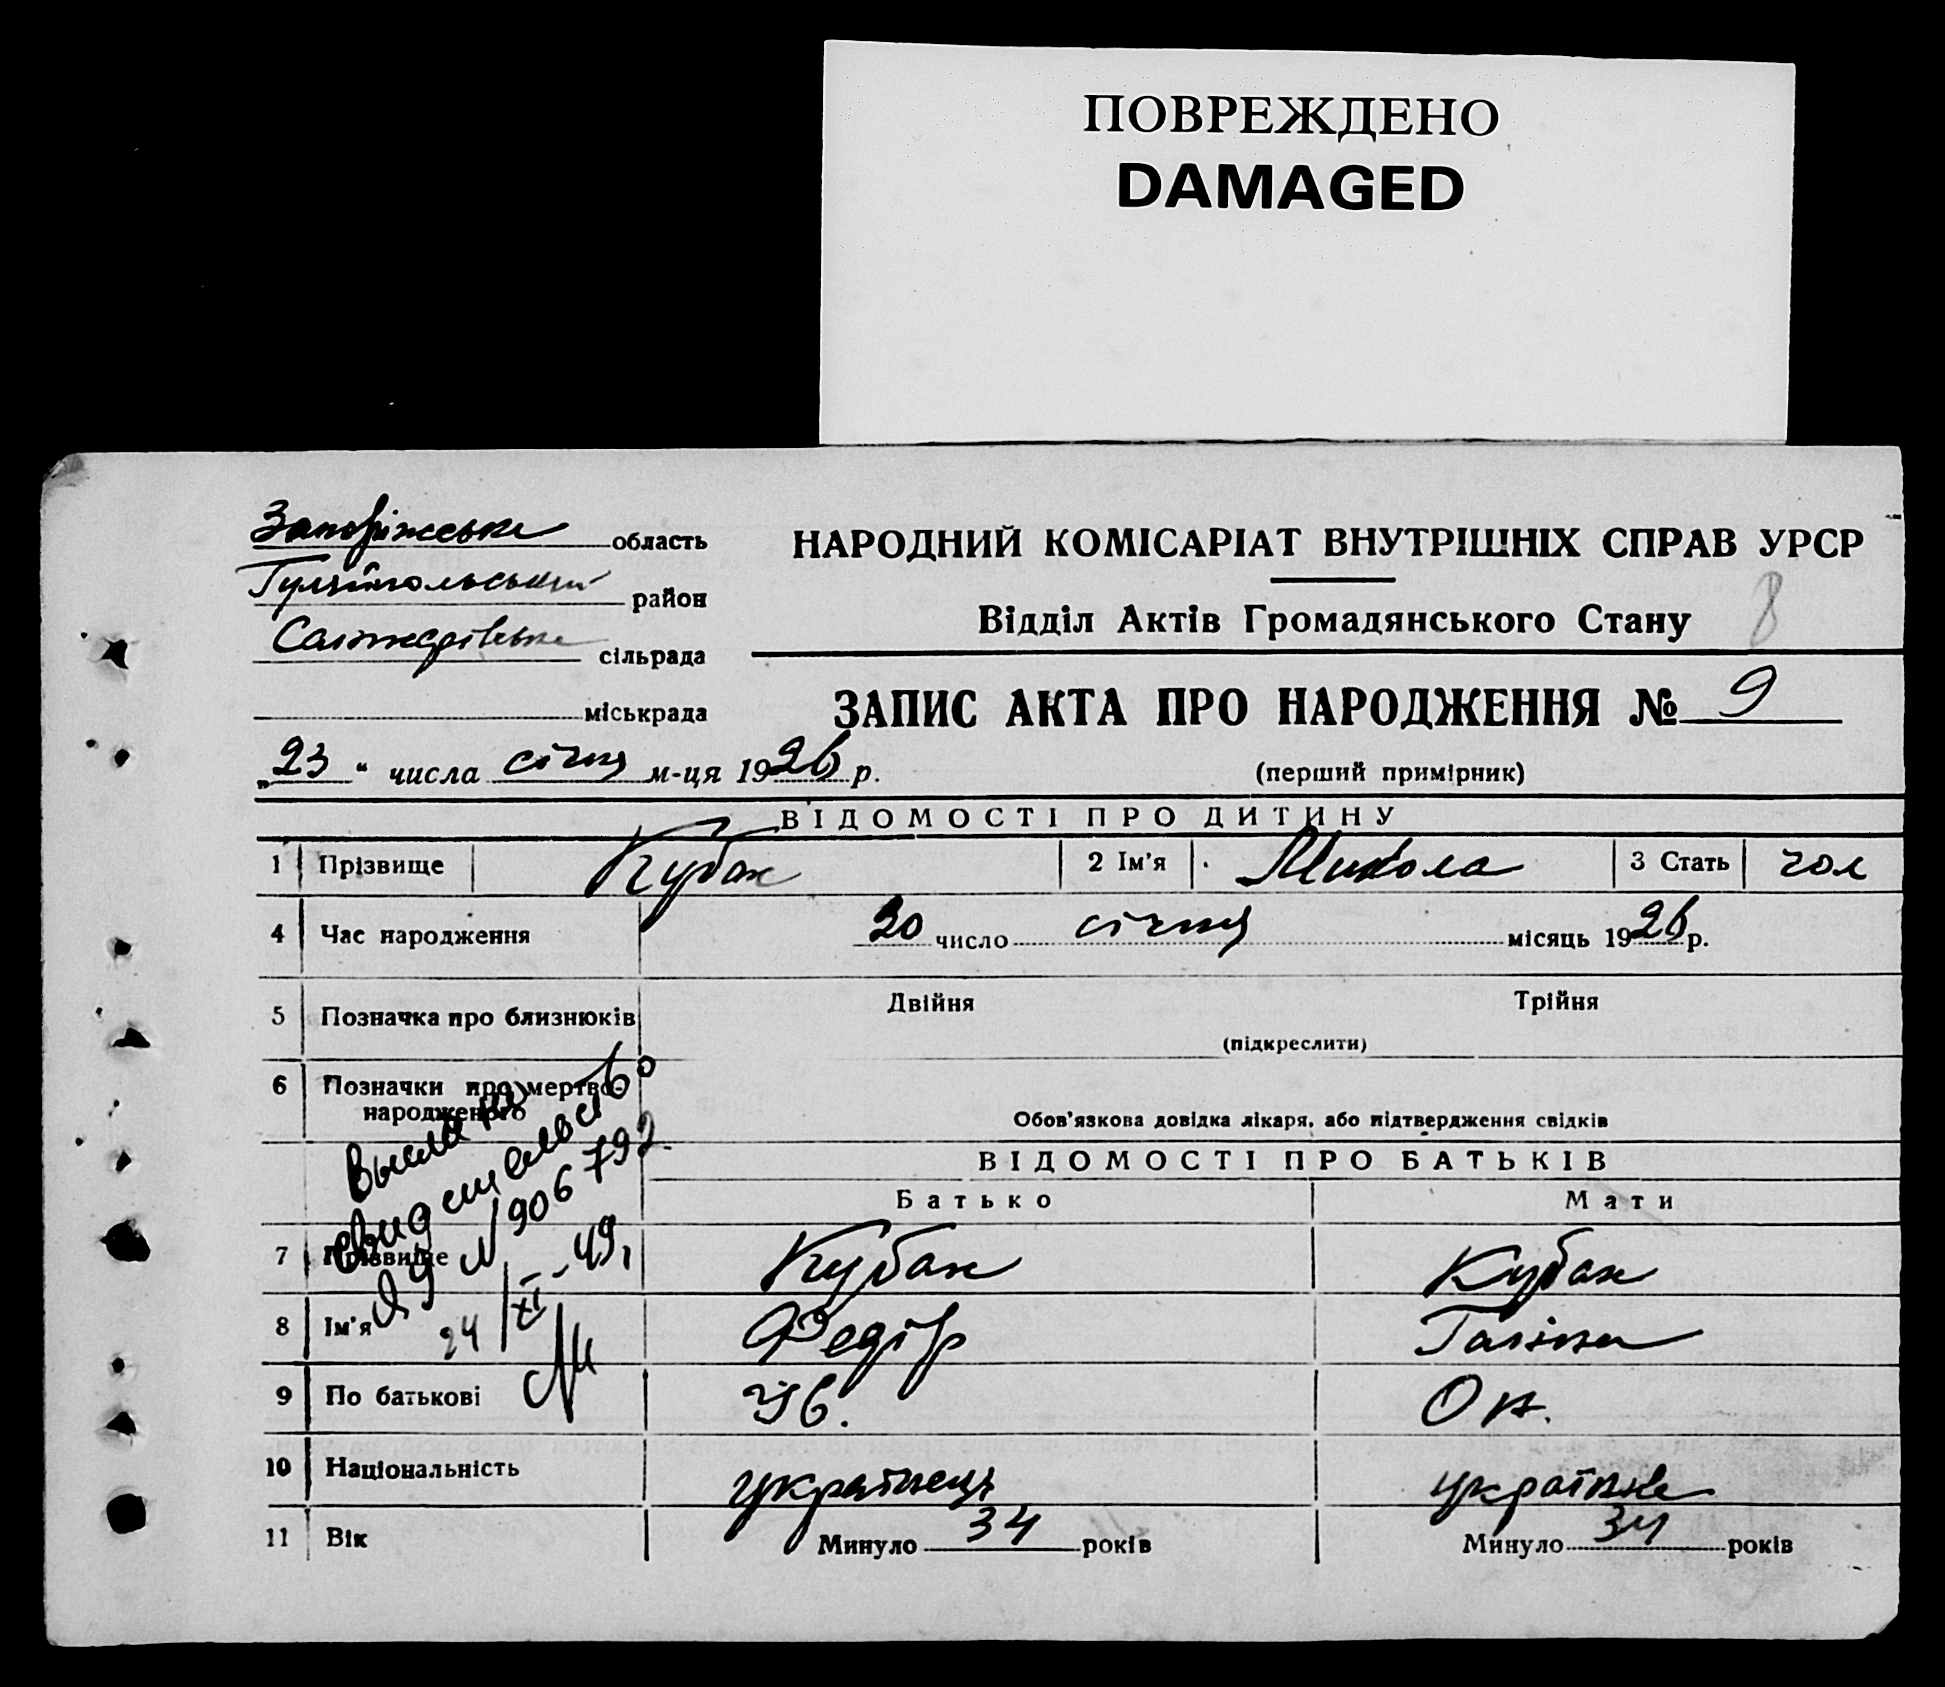 ПОВРЕЖДЕНО
DAMAGED
Запоріжська область
Гуляйпольський район
сільрада
міськрада
„23“ числа січня м-ця 1926 р.
НАРОДНИЙ КОМІСАРІАТ ВНУТРІШНІХ СПРАВ УРСР
Відділ Актів Громадянського Стану 8
ЗАПИС АКТА ПРО НАРОДЖЕННЯ № 9
(перший примірник)
ВІДОМОСТІ ПРО ДИТИНУ
1 Прізвище Кубак 2 Ім'я Микола 3 Стать чол
4 Час народження 20 число січня місяць 1926 р.
5 Позначка про близнюків Двійня Трійня
(підкреслити)
6 Позначки про мертво-
народженого
Обов'язкова довідка лікаря, або підтвердження свідків
Выслано
свидетельство
ЯЧ № 906792
24/XI-49г
ВІДОМОСТІ ПРО БАТЬКІВ
Батько Мати
7 Прізвище Кубак Кубак
8 Ім'я Федір Галина
9 По батькові Ів. Он.
10 Національність українець українка
11 Вік Минуло 34 років Минуло 34 років